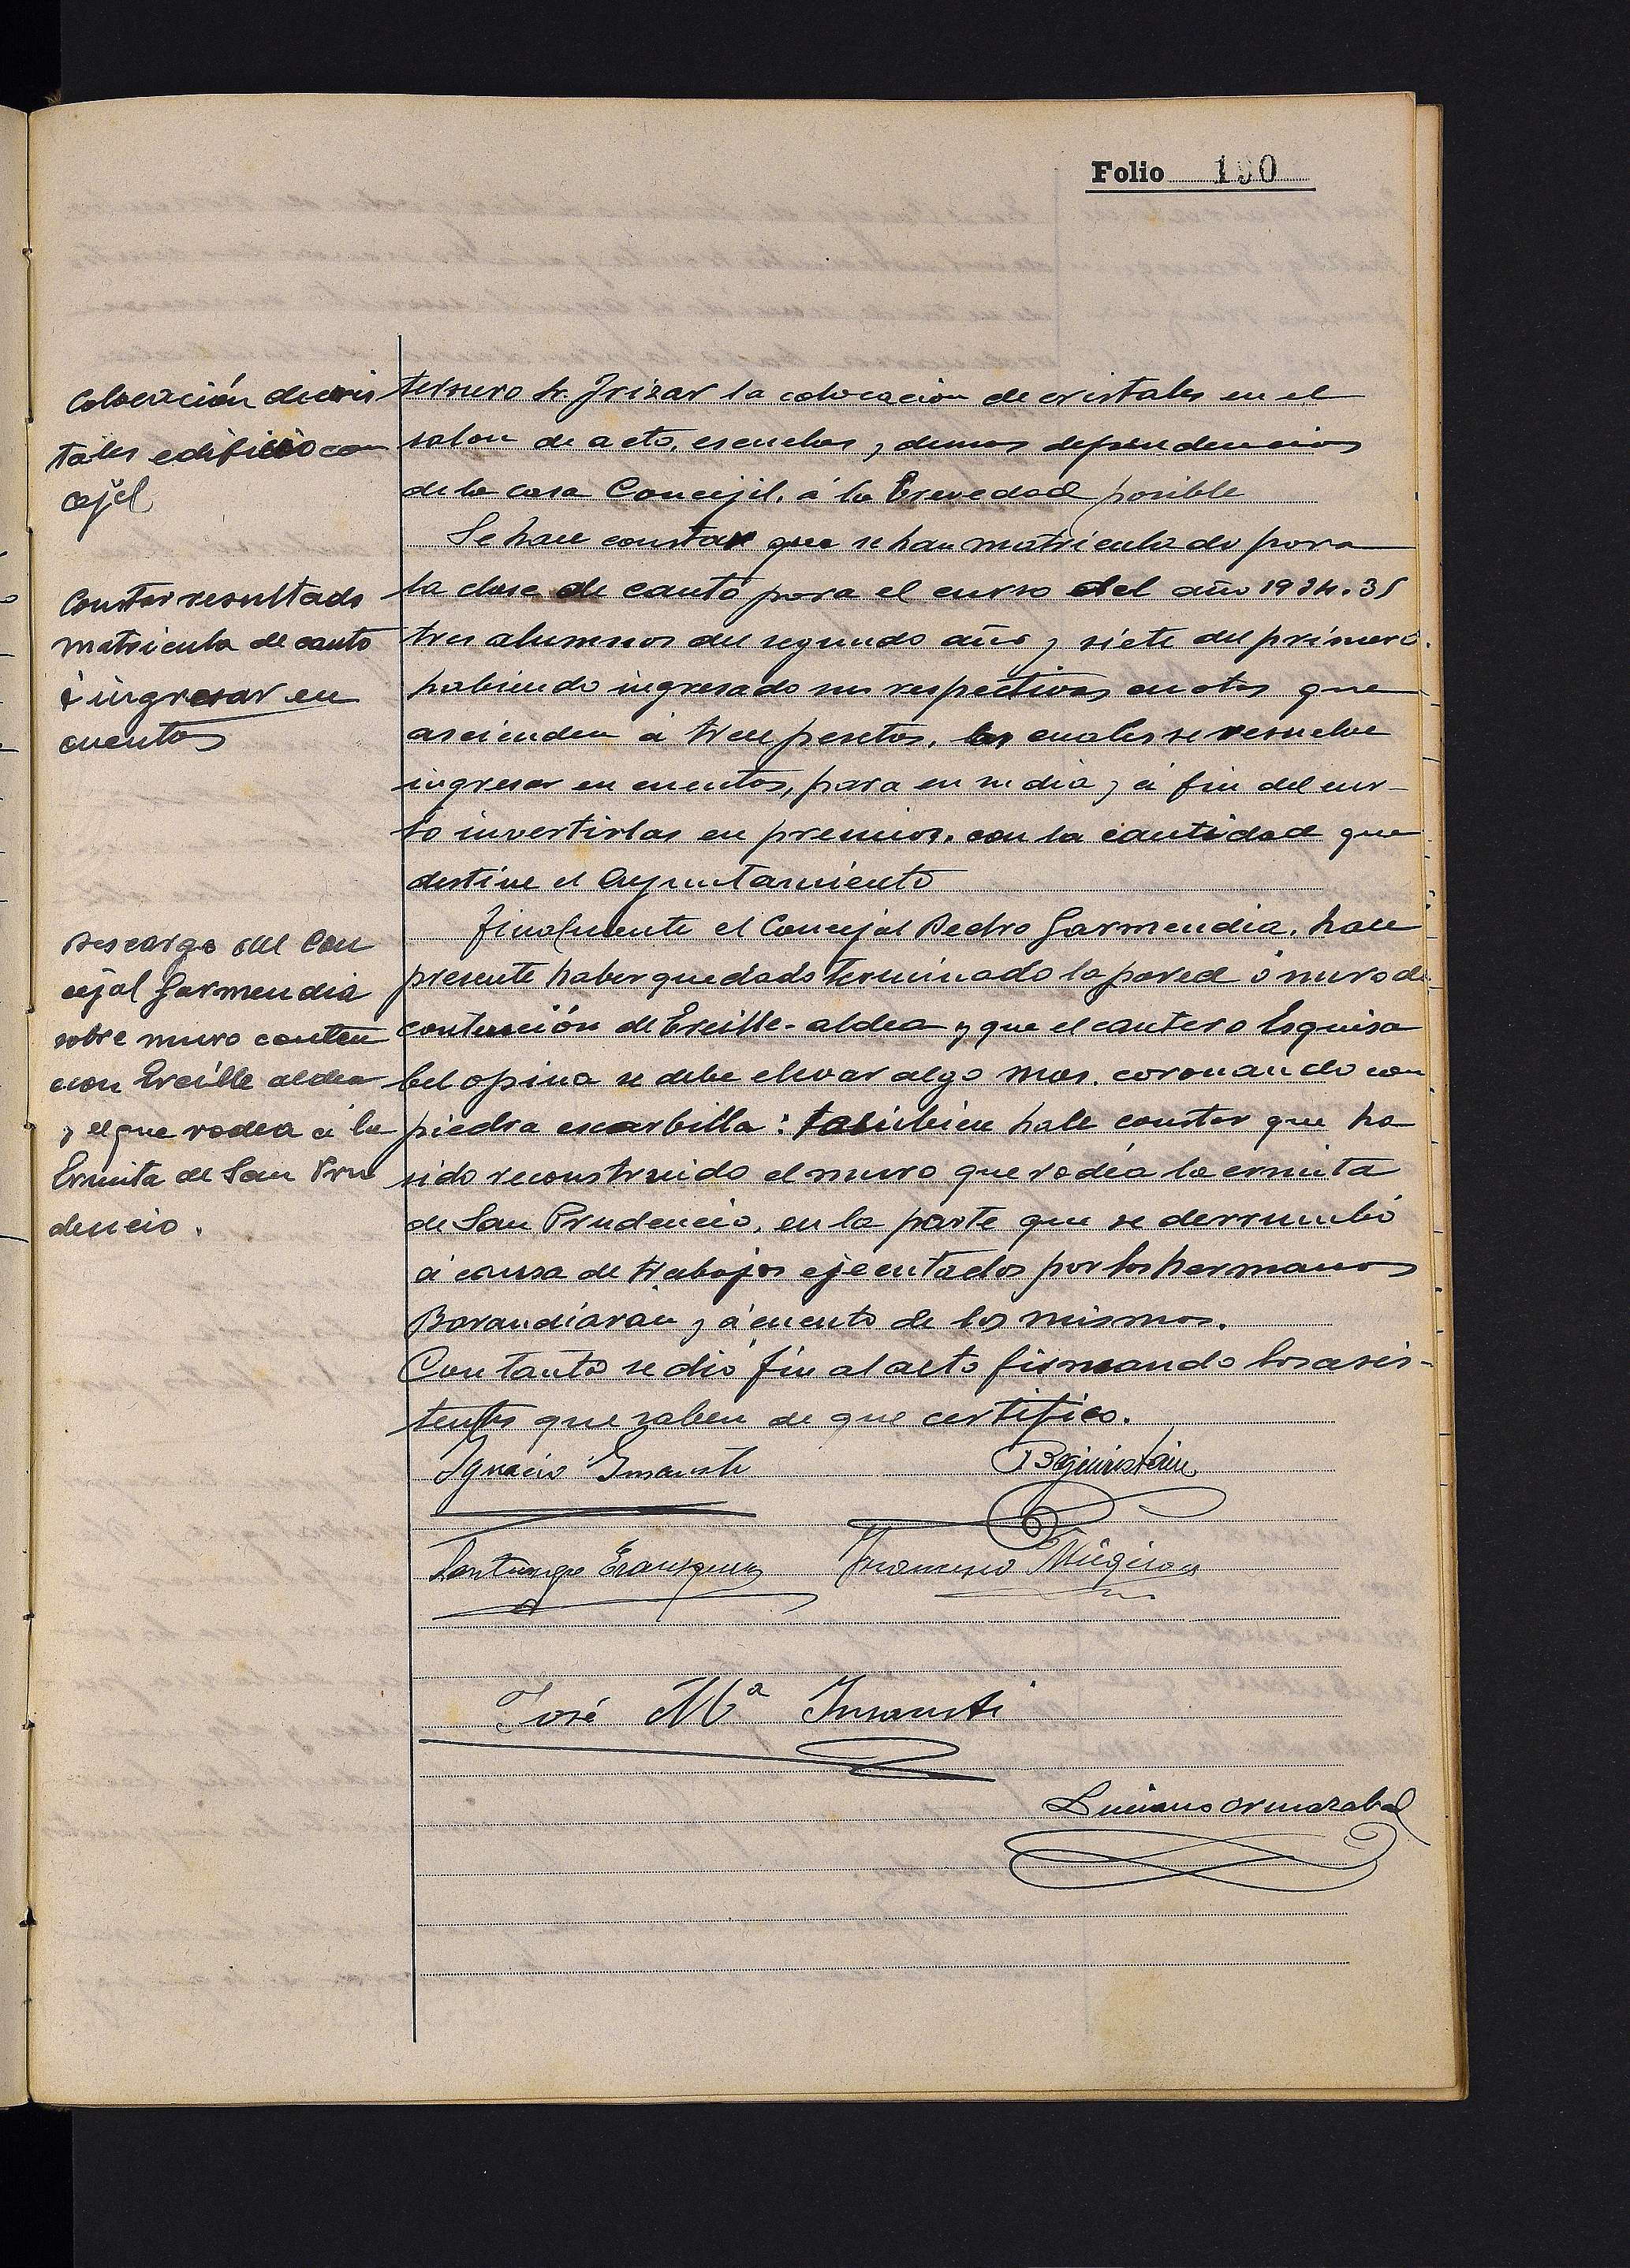 Folio 190
Colocación de cris
tales edificio con
cejil
tersuero Sr. Irizar la colocacion de cristales en el
salon de acto, escuelas, y demas dependencias
de la casa Concejil, á la brevedad posible
Se hace constar que se han matriculado para
Constar resultado
matricula de canto
é ingresar en
cuentas
la clase de canto para el curso del año 1934.35
tres alumnos del segundo año y siete del primero.
habiendo ingresado sus respectivas cuotas que
ascienden á trece pesetas, las cuales se resuelve
ingresar en cuentas, para en su dia y á fin del cur-
so invertirlas en premios, con la cantidad que
destine el Ayuntamiento
Descargo del Con
cejal Garmendia
sobre muro conten
cion Ercille aldea
y el que rodea á la
Ermita de San Pru
dencio.
Finalmente el Concejal Pedro Garmendia, hace
presente haber quedado terminado la pared ó muro de
contención de Ercille-aldea y que el cantero Esquisa
bel opina se debe elevar algo mas, coronando con
piedra escarbilla: también hace constar que ha
sido reconstruido el muro que rodea la ermita
de San Prudencio, en la parte que se derrumbó
á causa de trabajos ejecutados por los hermanos
Barandiarán y á cuenta de los mismos.
Con tanto se dió fin al acto firmando los asis-
tentes que saben de que certifico.
Ignacio Insausti
B Eguiristain
Santiago Eransquin
Francisco Mugica
José Mª Insausti
Luciano Ormazabal